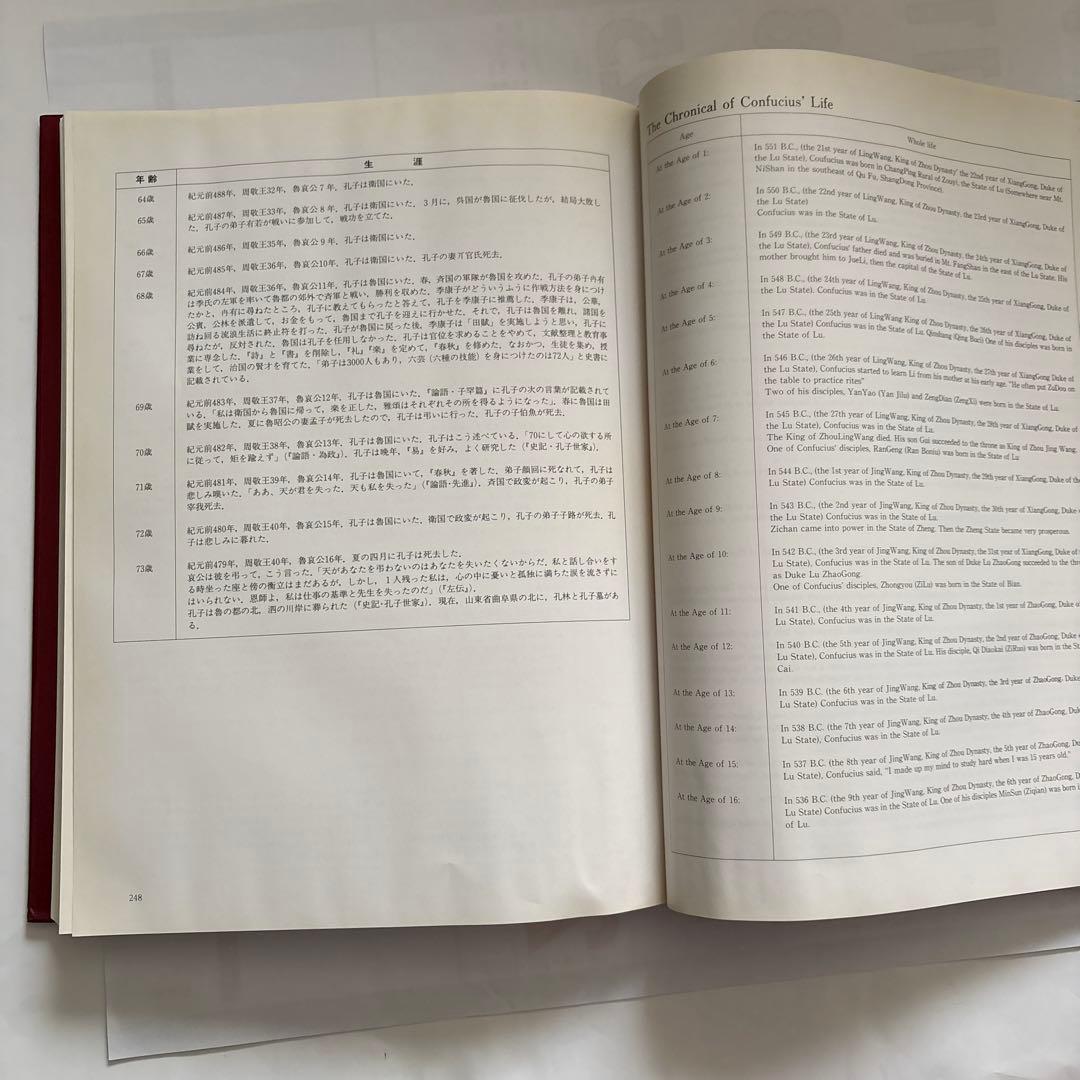 生 涯
年 齢
64歳 紀元前488年，周敬王32年，魯哀公7年，孔子は衛国にいた．
65歳 紀元前487年，周敬王33年，魯哀公8年，孔子は衛国にいた．3月に，呉国が魯国に征伐したが，結局大敗し
た．孔子の弟子有若が戦いに参加して，戦功を立てた．
66歳 紀元前486年，周敬王35年，魯哀公9年，孔子は衛国にいた．
67歳 紀元前485年，周敬王36年，魯哀公10年，孔子は衛国にいた，孔子の妻丌官氏死去．
68歳 紀元前484年，周敬王36年，魯哀公11年，孔子は衛国にいた．春，斉国の軍隊が魯国を攻めた．孔子の弟子冉有
は季氏の左軍を率いて魯都の郊外で斉軍と戦い，勝利を収めた．季康子がどういうふうに作戦方法を身につけ
たかと，冉有に尋ねたところ，孔子に教えてもらったと答えて，孔子を季康子に推薦した．季康子は，公華，
公賓，公林を派遣して，お金をもって，魯国まで孔子を迎えに行かせた．それで，孔子は衛国を離れ，諸国を
訪ね回る流浪生活に終止符を打った．孔子が魯国に戻った後，季康子は「田賦」を実施しようと思い，孔子に
尋ねたが，反対された．魯国は孔子を任用しなかった．孔子は官位を求めることをやめて，文献整理と教育事
業に専念した．『詩』と『書』を削除し，『礼』『楽』を定めて，『春秋』を修めた．なおかつ，生徒を集め，授
業をして，治国の賢才を育てた．「弟子は3000人もあり，六芸（六種の技能）を身につけたのは72人」と史書に
記載されている．
69歳 紀元前483年，周敬王37年，魯哀公12年，孔子は魯国にいた．『論語・子罕篇』に孔子の次の言葉が記載されて
いる．「私は衛国から魯国に帰って，楽を正した，雅頌はそれぞれその所を得るようになった」．春に魯国は田
賦を実施した．夏に魯昭公の妻孟子が死去したので，孔子は弔いに行った．孔子の子伯魚が死去．
70歳 紀元前482年，周敬王38年，魯哀公13年，孔子は魯国にいた，孔子はこう述べている．「70にして心の欲する所
に従って，矩を踰えず」（『論語・為政』）．孔子は晩年，『易』を好み，よく研究した（『史記・孔子世家』）．
71歳 紀元前481年，周敬王39年，魯哀公14年，孔子は魯国にいて，『春秋』を著した．弟子顔回に死なれて，孔子は
悲しみ嘆いた．「ああ，天が君を失った．天も私を失った」（『論語・先進』）．斉国で政変が起こり，孔子の弟子
宰我死去．
72歳 紀元前480年，周敬王40年，魯哀公15年，孔子は魯国にいた．衛国で政変が起こり，孔子の弟子子路が死去．孔
子は悲しみに暮れた．
73歳 紀元前479年，周敬王40年，魯哀公16年．夏の四月に孔子は死去した．
哀公は彼を弔って，こう言った．「天があなたを弔わないのはあなたを失いたくないからだ．私と話し合いをす
る時坐った座と傍の衝立はまだあるが，しかし，1人残った私は，心の中に憂いと孤独に満ちた涙を流さずに
はいられない．恩師よ，私は仕事の基準と先生を失ったのだ」（『左伝』）．
孔子は魯の都の北，泗の川岸に葬られた（『史記・孔子世家』）．現在，山東省曲阜県の北に，孔林と孔子墓があ
る．
248
The Chronical of Confucius' Life
Age Whole life
At the Age of 1: In 551 B.C., (the 21st year of LingWang, King of Zhou Dynasty' the 22nd year of XiangGong, Duke of
the Lu State), Coufucius was born in ChangPing Rural of Zouyi, the State of Lu (Somewhere near Mt.
NiShan in the southeast of Qu Fu, ShangDong Province).
At the Age of 2: In 550 B.C., (the 22nd year of LingWang, King of Zhou Dynasty, the 23rd year of XiangGong, Duke of
the Lu State)
Confucius was in the State of Lu.
At the Age of 3: In 549 B.C., (the 23rd year of LingWang, King of Zhou Dynasty, the 24th year of XiangGong, Duke of
the Lu State), Confucius' father died and was buried in Mt. FangShan in the east of the Lu State. His
mother brought him to JueLi, then the capital of the State of Lu.
At the Age of 4: In 548 B.C., (the 24th year of LingWang, King of Zhou Dynasty, the 25th year of XiangGong, Duke of
the Lu State), Confucius was in the State of Lu.
At the Age of 5: In 547 B.C., (the 25th year of LingWang, King of Zhou Dynasty, the 26th year of XiangGong, Duke of
the Lu State) Confucius was in the State of Lu. Qinshang (Qing Buci) One of his disciples was born in
At the Age of 6: In 546 B.C., (the 26th year of LingWang, King of Zhou Dynasty, the 27th year of XiangGong, Duke of
the Lu State), Confucius started to learn Li from his mother at his early age. "He often put ZuDou on
the table to practice rites"
Two of his disciples, YanYao (Yan Jilu) and ZengDian (ZengXi) were born in the State of Lu.
At the Age of 7: In 545 B.C., (the 27th year of LingWang, King of Zhou Dynasty, the 28th year of XiangGong, Duke of
the Lu State), Confucius was in the State of Lu.
The King of ZhouLingWang died. His son Gui succeeded to the throne as King of Zhou Jing Wang.
One of Confucius' disciples, RanGeng (Ran Boniu) was born in the State of Lu
At the Age of 8: In 544 B.C., (the 1st year of JingWang, King of Zhou Dynasty, the 29th year of XiangGong, Duke of the
Lu State) Confucius was in the State of Lu.
At the Age of 9: In 543 B.C., (the 2nd year of JingWang, King of Zhou Dynasty, the 30th year of XiangGong, Duke of
the Lu State) Confucius was in the State of Lu.
Zichan came into power in the State of Zheng. Then the Zheng State became very prosperous.
At the Age of 10: In 542 B.C. (the 3rd year of JingWang, King of Zhou Dynasty, the 31st year of XiangGong, Duke of the
Lu State), Confucius was in the State of Lu. The son of Duke Lu ZhaoGong succeeded to the
as Duke Lu ZhaoGong.
One of Confucius' disciples, Zhongyou (ZiLu) was born in the State of Bian.
At the Age of 11: In 541 B.C., (the 4th year of JingWang, King of Zhou Dynasty, the 1st year of ZhaoGong, Duke
Lu State), Confucius was in the State of Lu.
At the Age of 12: In 540 B.C. (the 5th year of JingWang, King of Zhou Dynasty, the 2nd year of ZhaoGong, Duke
Lu State), Confucius was in the State of Lu. His disciple, Qi Diaokai (ZiRuo) was born in the
Cai.
At the Age of 13: In 539 B.C. (the 6th year of JingWang, King of Zhou Dynasty, the 3rd year of ZhaoGong, Duke
Lu State) Confucius was in the State of Lu.
At the Age of 14: In 538 B.C. (the 7th year of JingWang, King of Zhou Dynasty, the 4th year of ZhaoGong,
Lu State), Confucius was in the State of Lu.
At the Age of 15: In 537 B.C. (the 8th year of JingWang, King of Zhou Dynasty, the 5th year of ZhaoGong,
Lu State), Confucius said, "I made up my mind to study hard when I was 15 years old."
At the Age of 16: In 536 B.C. (the 9th year of JingWang, King of Zhou Dynasty, the 6th year of ZhaoGong,
Lu State) Confucius was in the State of Lu. One of his disciples MinSun (Ziqian) was born
of Lu.